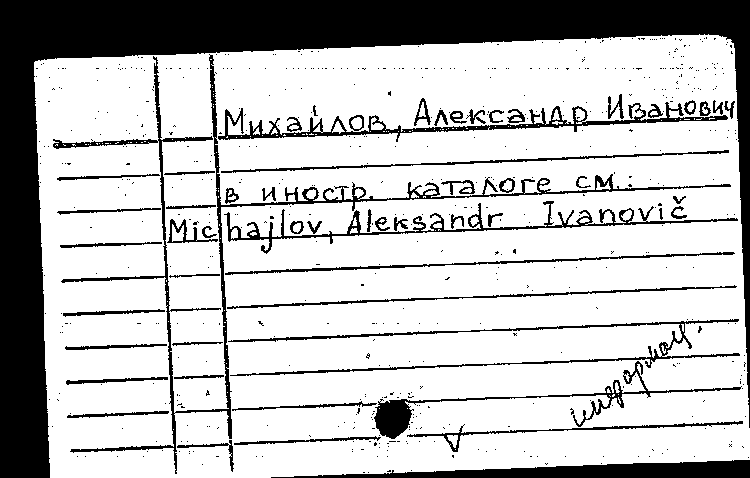 Михайлов, Александр Иванович
в иностр. каталоге см.:
Michajlov, Aleksandr Ivanovič
информац.
V